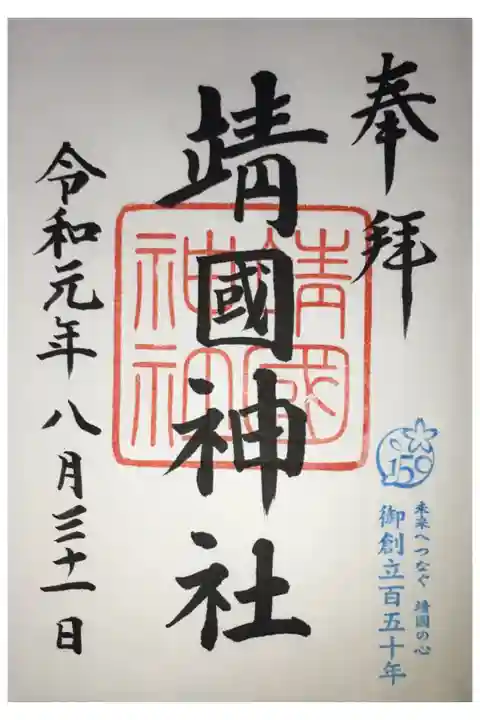 奉拜
150
未来へつなぐ 靖國の心
御創立百五十年
靖國神社
靖國
神社
令和元年八月三十一日